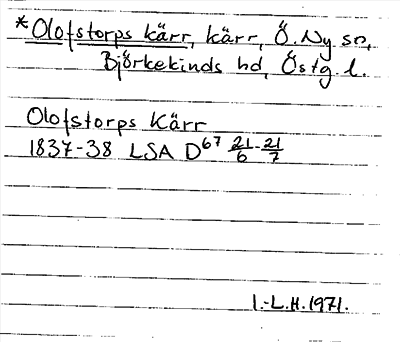 *Olofstorps kärr, kärr, Ö. Ny sn,
Björkekinds hd, Östg. l.
Olofstorps Kärr
1837-38 LSA D67 21/6-21/7
I.-L.H. 1971.